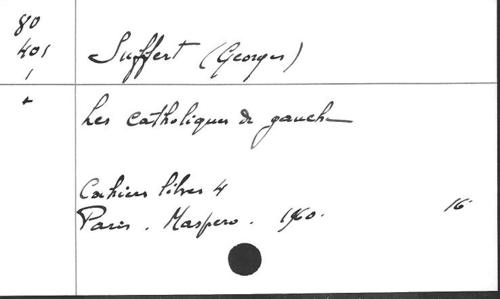 80
401
1
+
Suffert (Georges)
Les catholiques de gauche
Cahiers libres 4
Paris. Maspero. 1960.
16